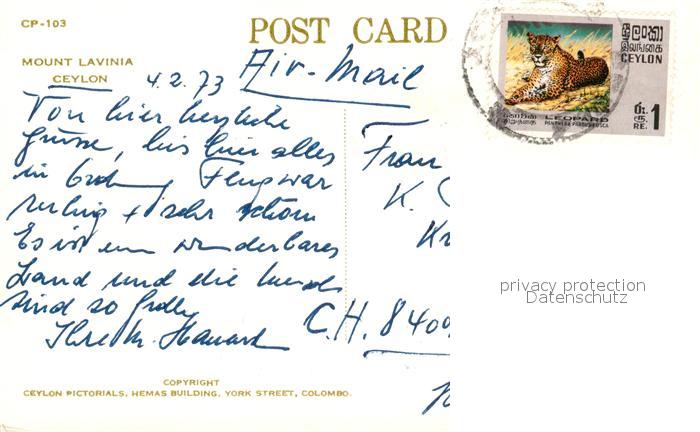 CP-103
POST CARD
MOUNT LAVINIA
CEYLON
4.2.73
Air-Mail
Von hier herzliche
Grüsse, bis hier alles
in Ordnung Flug war
ruhig + sehr schön
Es ist ein wunderbares
Land und die
sind so
Ihre M.
Frau
K.
Kr
C.H. 8400
COPYRIGHT
CEYLON PICTORIALS, HEMAS BUILDING, YORK STREET, COLOMBO.
ශ්‍රී ලංකා
இலங்கை
CEYLON
LEOPARD
PANTHERA PARDUS FUSCA
රු.
ரூ
RE.
1
privacy protection
Datenschutz